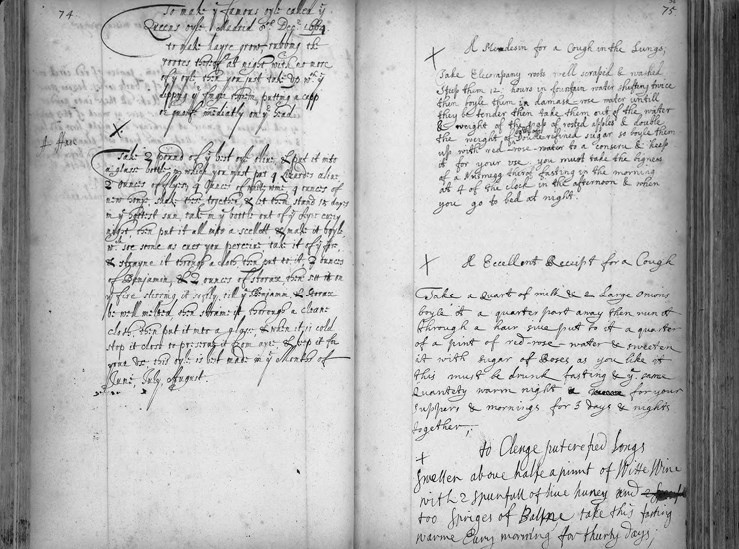 74
To make ye famous oyle called ye
Queens oyle
to make hayre grow, rubbing the
rootes thereof at night with as more
of ye oyle then you just take up with ye
dipping ye finger therein, putting a capp
or
Haire
Take 2 pound of ye best oyle olive, & put it into
a glass bottle, in which you must put 4 Lizards alive
2 ounces of flyes, 4 ounces of white wine, 4 ounces of
new honys, shake them together, & let them stand 12 dayes
in ye hottest sun, take in ye bottle out of ye sunn every
night then put it all into a scellett, & make it boyle,
wn see some as ever you perceive take it of ye fire,
& strayne it through a cloth then put to it, 2 ounces
of Benjamin, & 2 ounces of Storax, then sett it on
ye fire stirring it softly, till ye Benjamin & Storax
be well melted, then straine it through a cleane
cloth, then put it into a glass, & when it is cold
stop it close to preserve it from ayre, & keep it for
your use this oyle is best made in ye Months of
June, July, August.
75
A Medesin for a Cough in the Lungs,
Take Elecampany roots well scraped & washed
steep them 12 hours in fountain water shifting twice
then boyle them in damask rose water untill
they be tender then take them out of the water
& weight of the pap of rosted apples & double
the weight of refined sugar so boyle them
up with red rose water to a conserve & keep
it for your use you must take the bigness
of a Nutmegg therof fasting in the morning
at 4 of the clock in the afternoon & when
you go to bed at night.
A Eccellent Receipt for a Cough
Take a Quart of milk & 2 Large onions
boyle it a quarter part away then run it
through a hair sive put to it a quarter
of a pint of red rose water & sweeten
it with sugar of Roses as you like it
this must be drunk fasting & ye same
Quantety warm night & for your
suppers & mornings for 3 days & nights
together;
to Clenge putrefied Longs
Swellen above halfe a pinnt of Witte Wine
with 2 spunfull of live huney and
too Spriges of Balme take this fasting
warme Eury morning for thurty days;